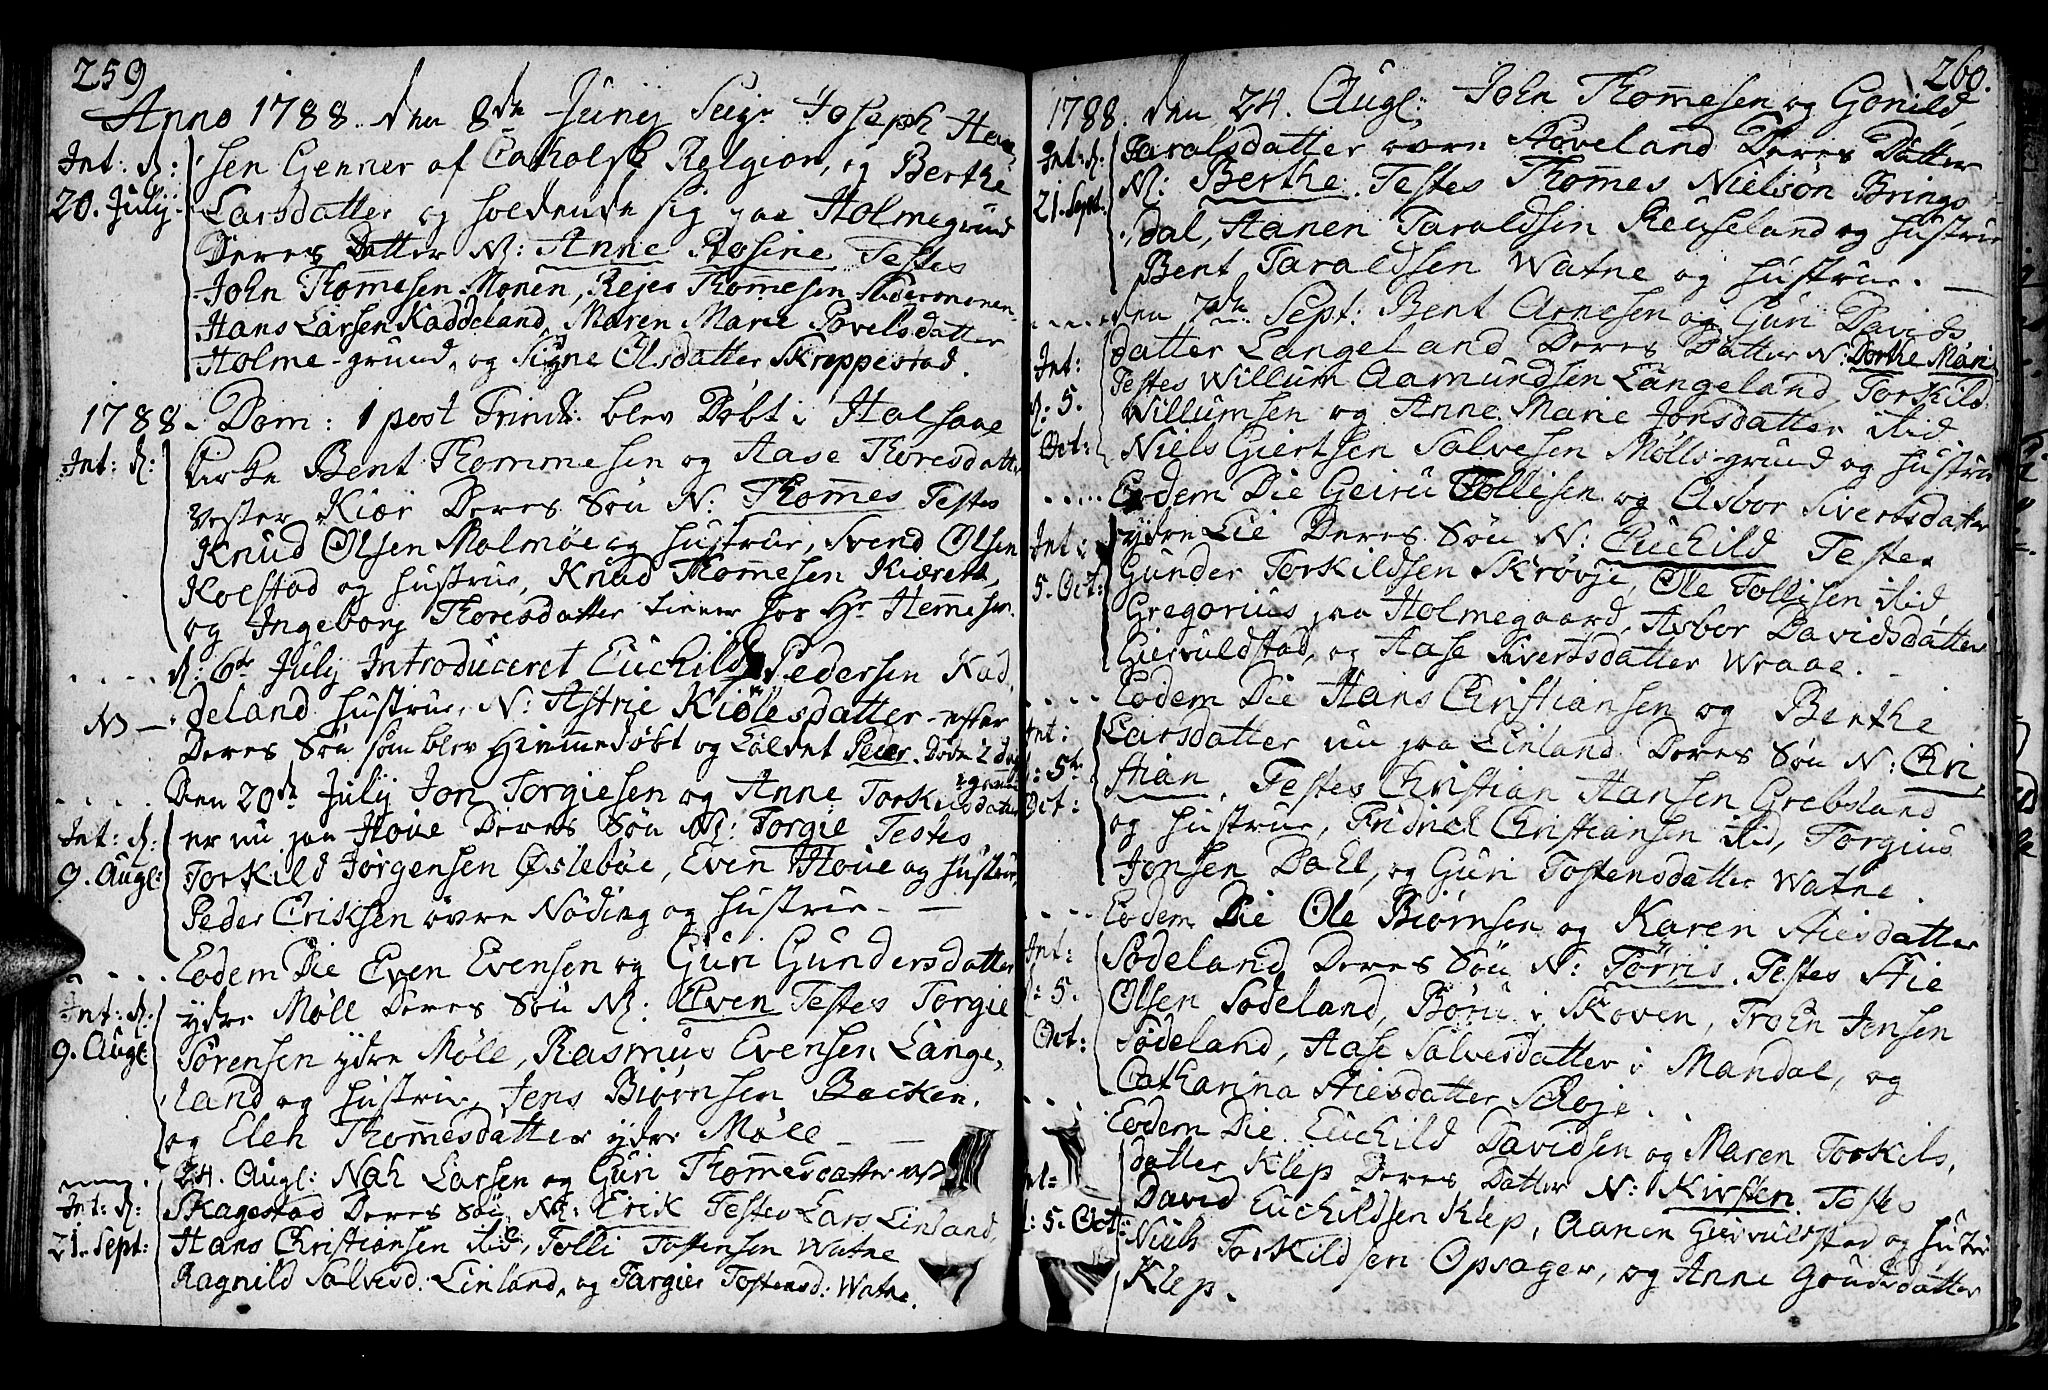 259
Anno 1788 den 8de Junij Seigr Joseph Hen
Int: d: sen Genner af Catholsk Religion, og Berthe
20. Julij Larsdatter og holdende sig paa Holmegrund
Deres Datter N: Anne Rosine Testes
John Thommesen Monen, Rejer Thommesen
Hans Larsen Kaddeland, Maren Marie Povelsdatter
Holme-grund, og Signe Olsdatter Skreppestad.
1788. Dom: 1 post Trinit: blev Døbt i Halsaae
Int: d: Kirke Bent Thommesen og Aase Thoresdatter
Vester Kiær Deres Søn N: Thommes Testes
Knud Olsen Malmøe og Hustrue, Svend Olsen
Kolstad og Hustrue, Knud Thommesen Kiærets,
og Ingeborg Thoresdatter tiener hos Hr Hemmesen.
d: 6te July Introduceret Euchild Pedersen Kad,
deland Hustrue, N: Astrie Kiølesdatter - efter
Deres Søn som blev Hiemmedøbt og kaldet Peder. Døde 2 dag
gammel
Den 20de July Jon Torgiesen og Anne Torkildsdatter
Int: d: er nu paa Houe Deres Søn N: Torgie Testes
9. Augl: Torkild Jørgensen Øslebøe, Even Houe og Hustrue,
Peder Eriksen øvre Nøding og Hustrue - —
Eodem Die Even Evensen og Guri Gundersdatter
Int: d: ydre Møll Deres Søn N: Even Testes Torgie
9. Augl: Sørensen ydre Møll, Rasmus Evensen Lange,
land og Hustrue, Jens Biørnsen Backen,
og Eleh Thommesdatter ydre Møll —
24. Augl: Nah Larsen og Guri Thommesdatter
Int: d: Skagestad Deres Søn N: Erik Testes Lars Linland,
21. Sept: Hans Christiansen ibid, Tolli Tostensen Watne
Ragnild Salvesd: Linland, og Targier Tostensd: Watne.
260.
1788. den 24. Augl: John Thommesen og Gonild
Int: d: Taralsdatter øvre Høveland Deres Datter
21. Sept: N: Berthe. Testes Thommes Nielsøn Brings
dal, Aanen Taraldsen Reuseland og Hustrue
Bent Taraldsen Watne og Hustrue. —
den 7de Sept: Bent Arnesen og Guri Davids
Int: datter Langeland Deres Datter N: Dorthe Mari
d: 5. Testes Willum Aamundsen Langeland, Torkild
Oct: Willumsen og Anne Marie Jonsdatter ibid
Niels Giertsen Salvesen Mølls-grund og Hustrue
Eodem Die Geiru Tollisen og Asbor Sivertsdatter
Int: ydre Lie Deres Søn N: Euchild Testes
5. Oct: Gunder Torkildsen Skrøvje, Ole Tollisen ibid,
Gregorius paa Holmegaard, Asbor Davidsdatter
Gieruldstad, og Aase Sivertsdatter Wraae.
Eodem Die Hans Christiansen og Berthe
Int: Larsdatter nu paa Linland Deres Søn N: Chri
5te stian, Testes Christian Hansen Grebsland
Oct: og Hustrue, Fridrich Christiansen ibid, Torgius
Jonsen Dahl, og Guri Tostensdatter Watne.
Eodem Die Ole Biørnsen og Karen Aiesdatter
Int: Sødeland Deres Søn N: Tørris. Testes Aie
d: 5. Olsen Sødeland, Børu i Skoven, Troen Jensen
Oct: Sødeland, Aase Salvesdatter i Mandal, og
Catharina Aiesdatter Scløje.
Eodem Die Euchild Davidsen og Maren Torkils,
Int: datter Klep Deres Datter N: Kirsten. Testes
d: 5. Oct: David Euchildsen Klep, Aanen Gieruldstad og Hustru
Niels Torkildsen Opsager, og Anne Goudesdatter
Klep.